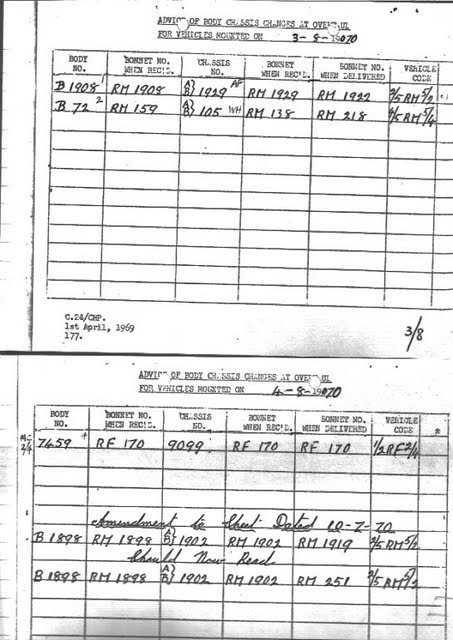 ADVICE OF BODY CHASSIS CHANGES AT OVERHAUL
FOR VEHICLES MOUNTED ON 3-8-1970
BODY NO. BONNET NO. WHEN REC'D. CHASSIS NO. BONNET WHEN REC'D. BONNET NO. WHEN DELIVERED VEHICLE CODE
B 1908 1 RM 1908 A) B) 1929 AF RM 1929 RM 1922 2/5 RM 5/2
B 72 2 RM 159 A) B) 105 WH RM 138 RM 218 RM 5/4
C.24/CHP.
1st April, 1969
177.
3/8
ADVICE OF BODY CHASSIS CHANGES AT OVERHAUL
FOR VEHICLES MOUNTED ON 4-8-1970
BODY NO. BONNET NO. WHEN REC'D. CHASSIS NO. BONNET WHEN REC'D. BONNET NO. WHEN DELIVERED VEHICLE CODE *
7459 RF 170 9099 RF 170 RF 170 1/2 RF 2/4
Amendment to Sheet Dated 10-7-70
B 1898 RM 1898 A) B) 1902 RM 1902 RM 1919 2/5 RM 5/2
Should Now Read
B 1898 RM 1898 A) B) 1902 RM 1902 RM 251 2/5 RM 5/2